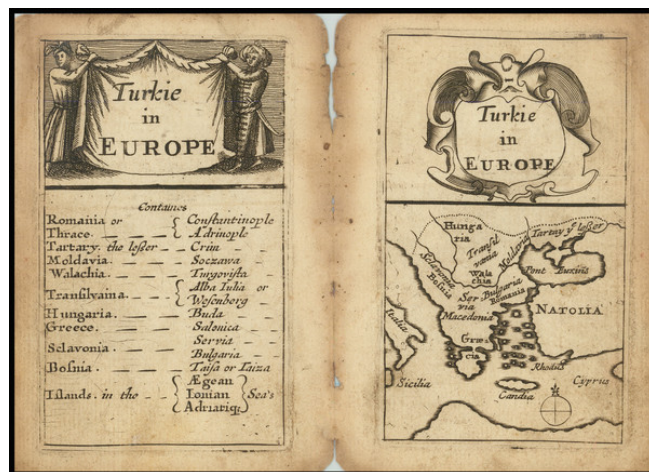 Turkie
in
EUROPE
Containes
Romania or
Thrace. { Constantinople
Adrinople
Tartary. the leſser - - Crim
Moldavia. Soczawa
Walachia. Turgoviſta
Tranſilvaina. { Alba Iulia or
Weſenberg
Hungaria. Buda
Greece. Salonica
Sclavonia. Servia
Bulgaria
Boſnia. Taiſa or Laiza
Iſlands. in the - - { Ægean
Ionian
Adriatiq; } Sea's
Turkie
in
EUROPE
Hunga
ria
Tranſil
vania
Moldavia
Tartary yᵉ leſser
Sclavonia
Boſnia
Wala
chia
Pont Euxine
Ser
via
Bulgaria
Romania
Macedonia
NATOLIA
Italia
Græ
cia
Rhodus
Sicilia
Candia
Cyprus